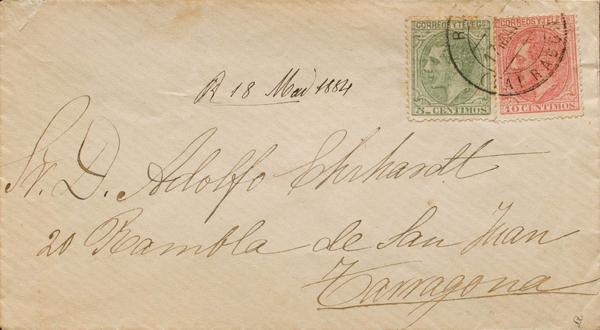 CORREOS Y TELEGS
CORREOS Y TELEGS
5 CENTIMOS
10 CENTIMOS
R 18 Mai 1884
Sr. D. Adolfo Ehrhardt
20 Rambla de San Juan
Tarragona